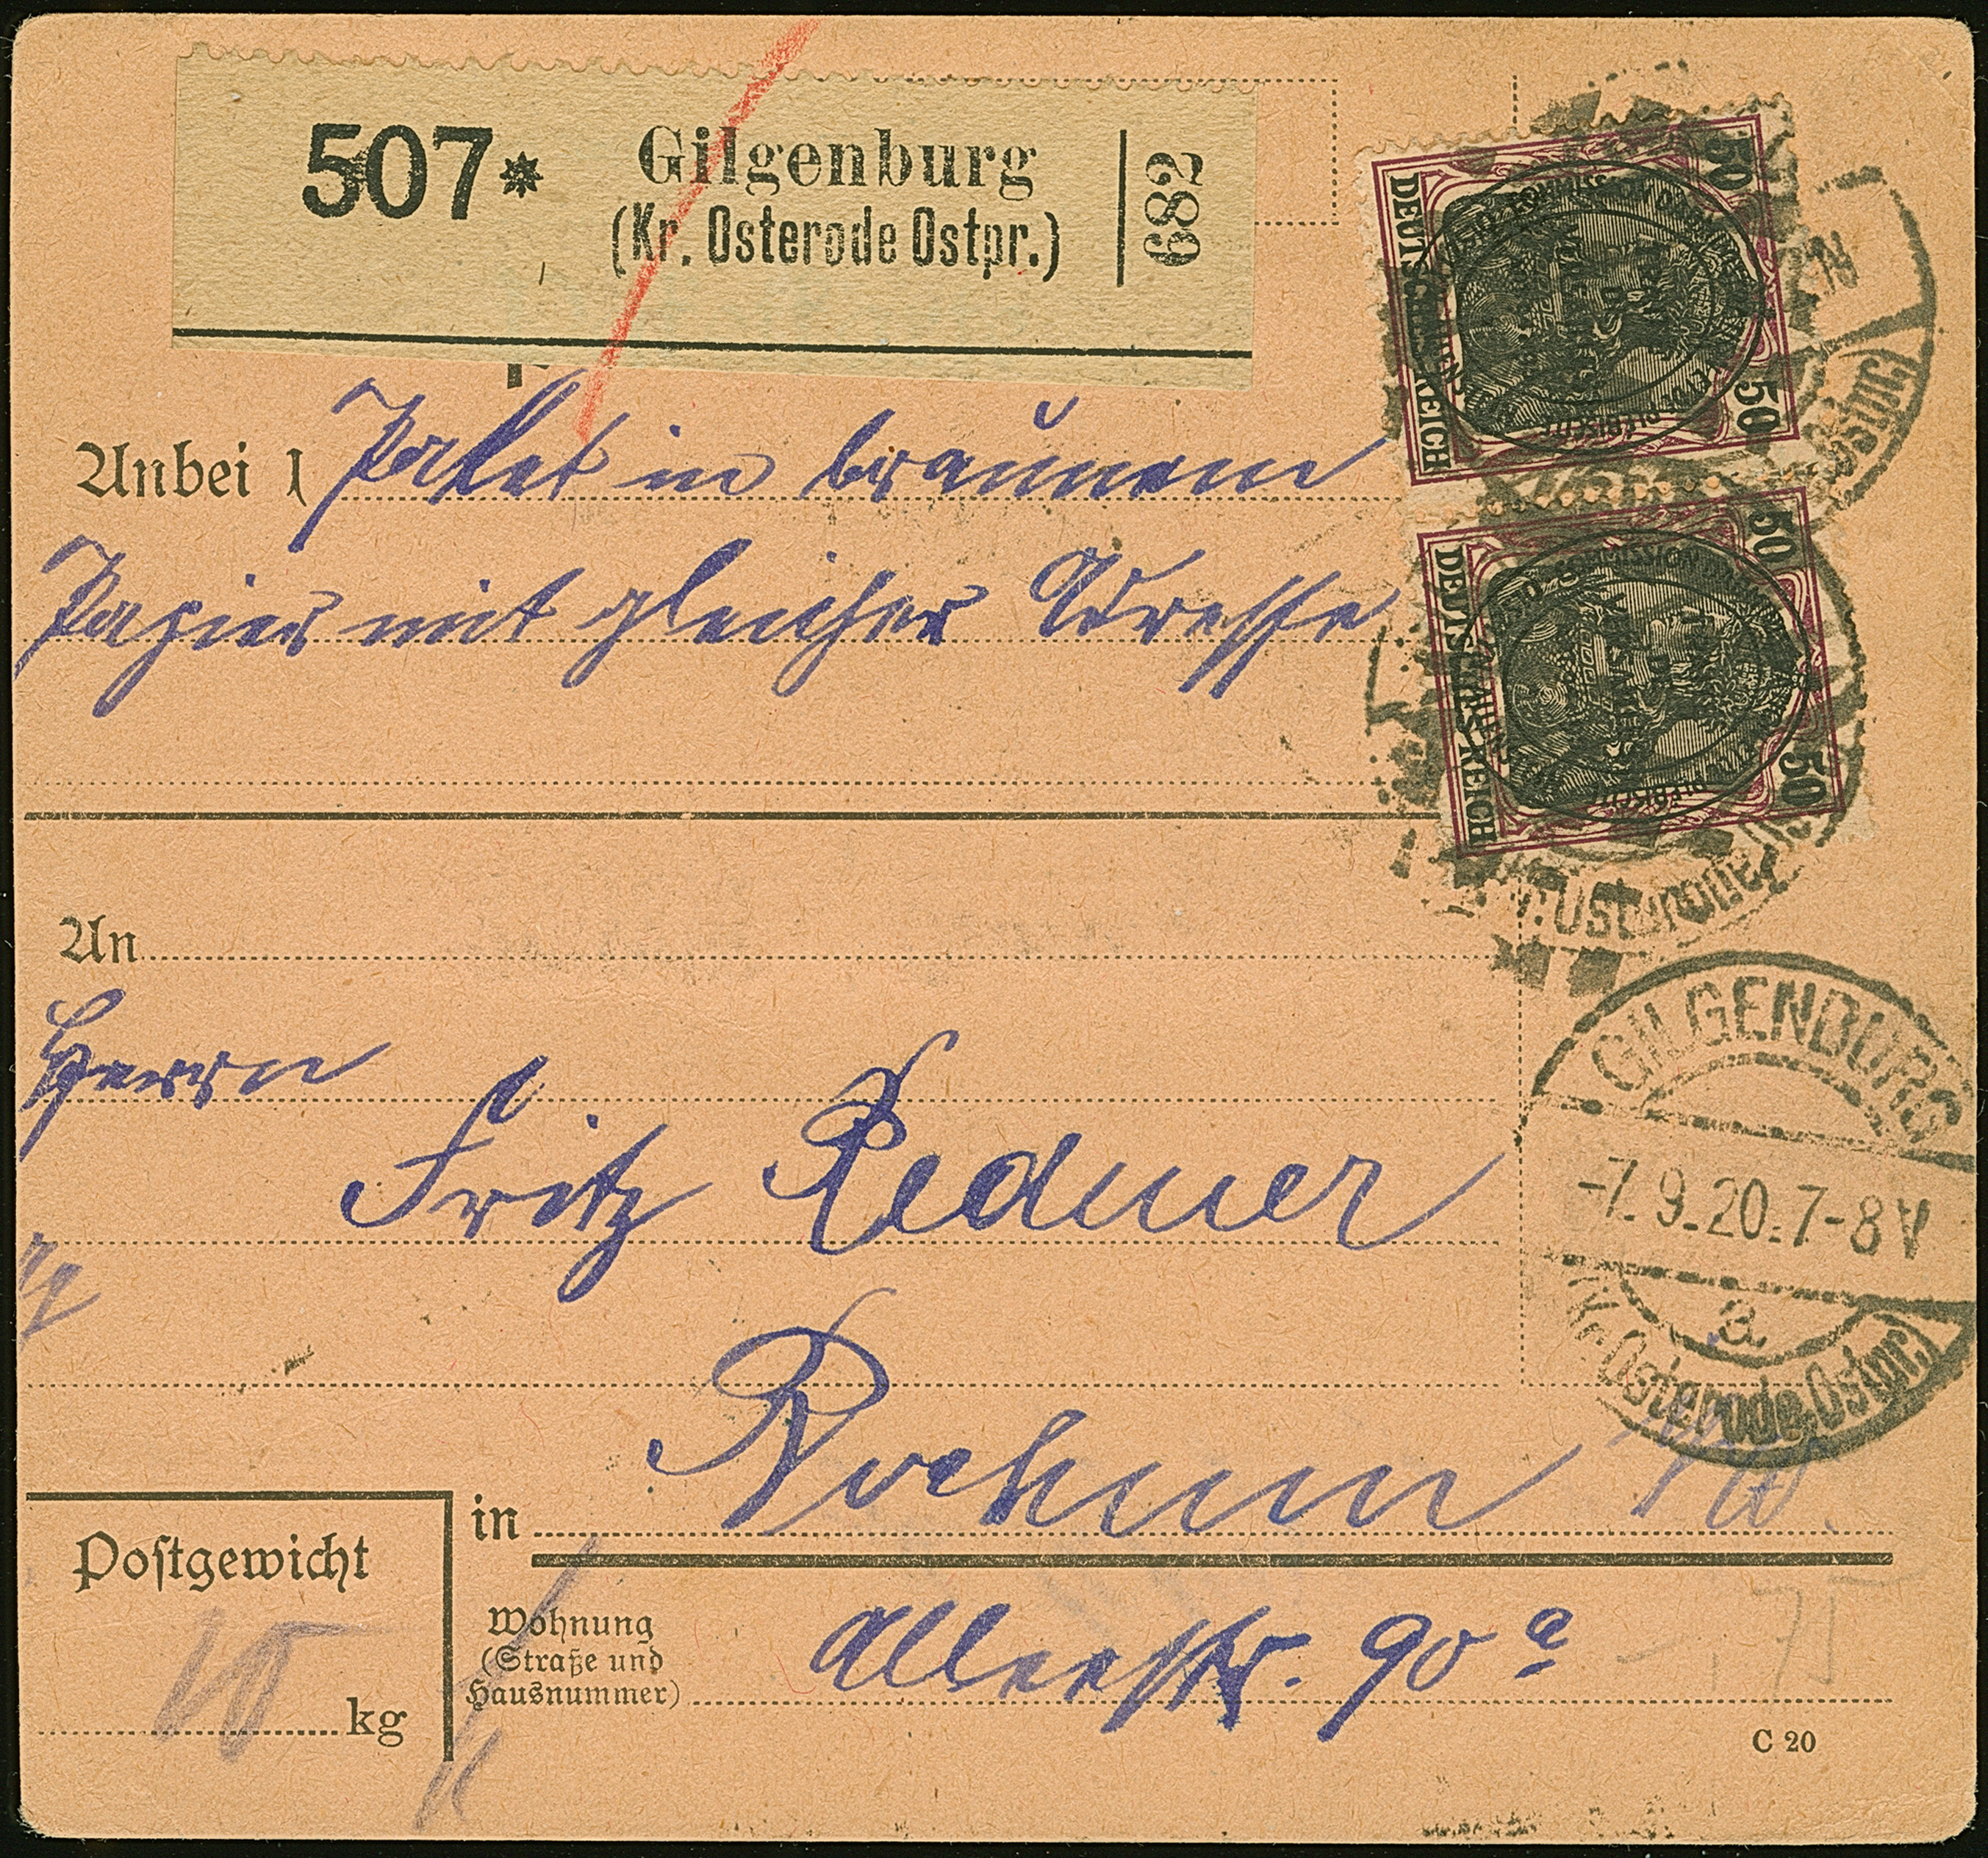 507* Gilgenburg
(Kr. Osterode Ostpr.)
682
50
DEUTSCHES REICH
50
50
DEUTSCHES REICH
50
Ostpr.)
Anbei 1 Paket in braunem
Papier mit gleicher Adresse
An
Herrn
Fritz Redmer
GILGENBURG
-7.9.20.7-8V
a
(Kr. Osterode, Ostpr.)
in Bochum
Postgewicht
10 kg
Wohnung
(Straße und
Hausnummer)
Alleestr. 90 a
75
C 20